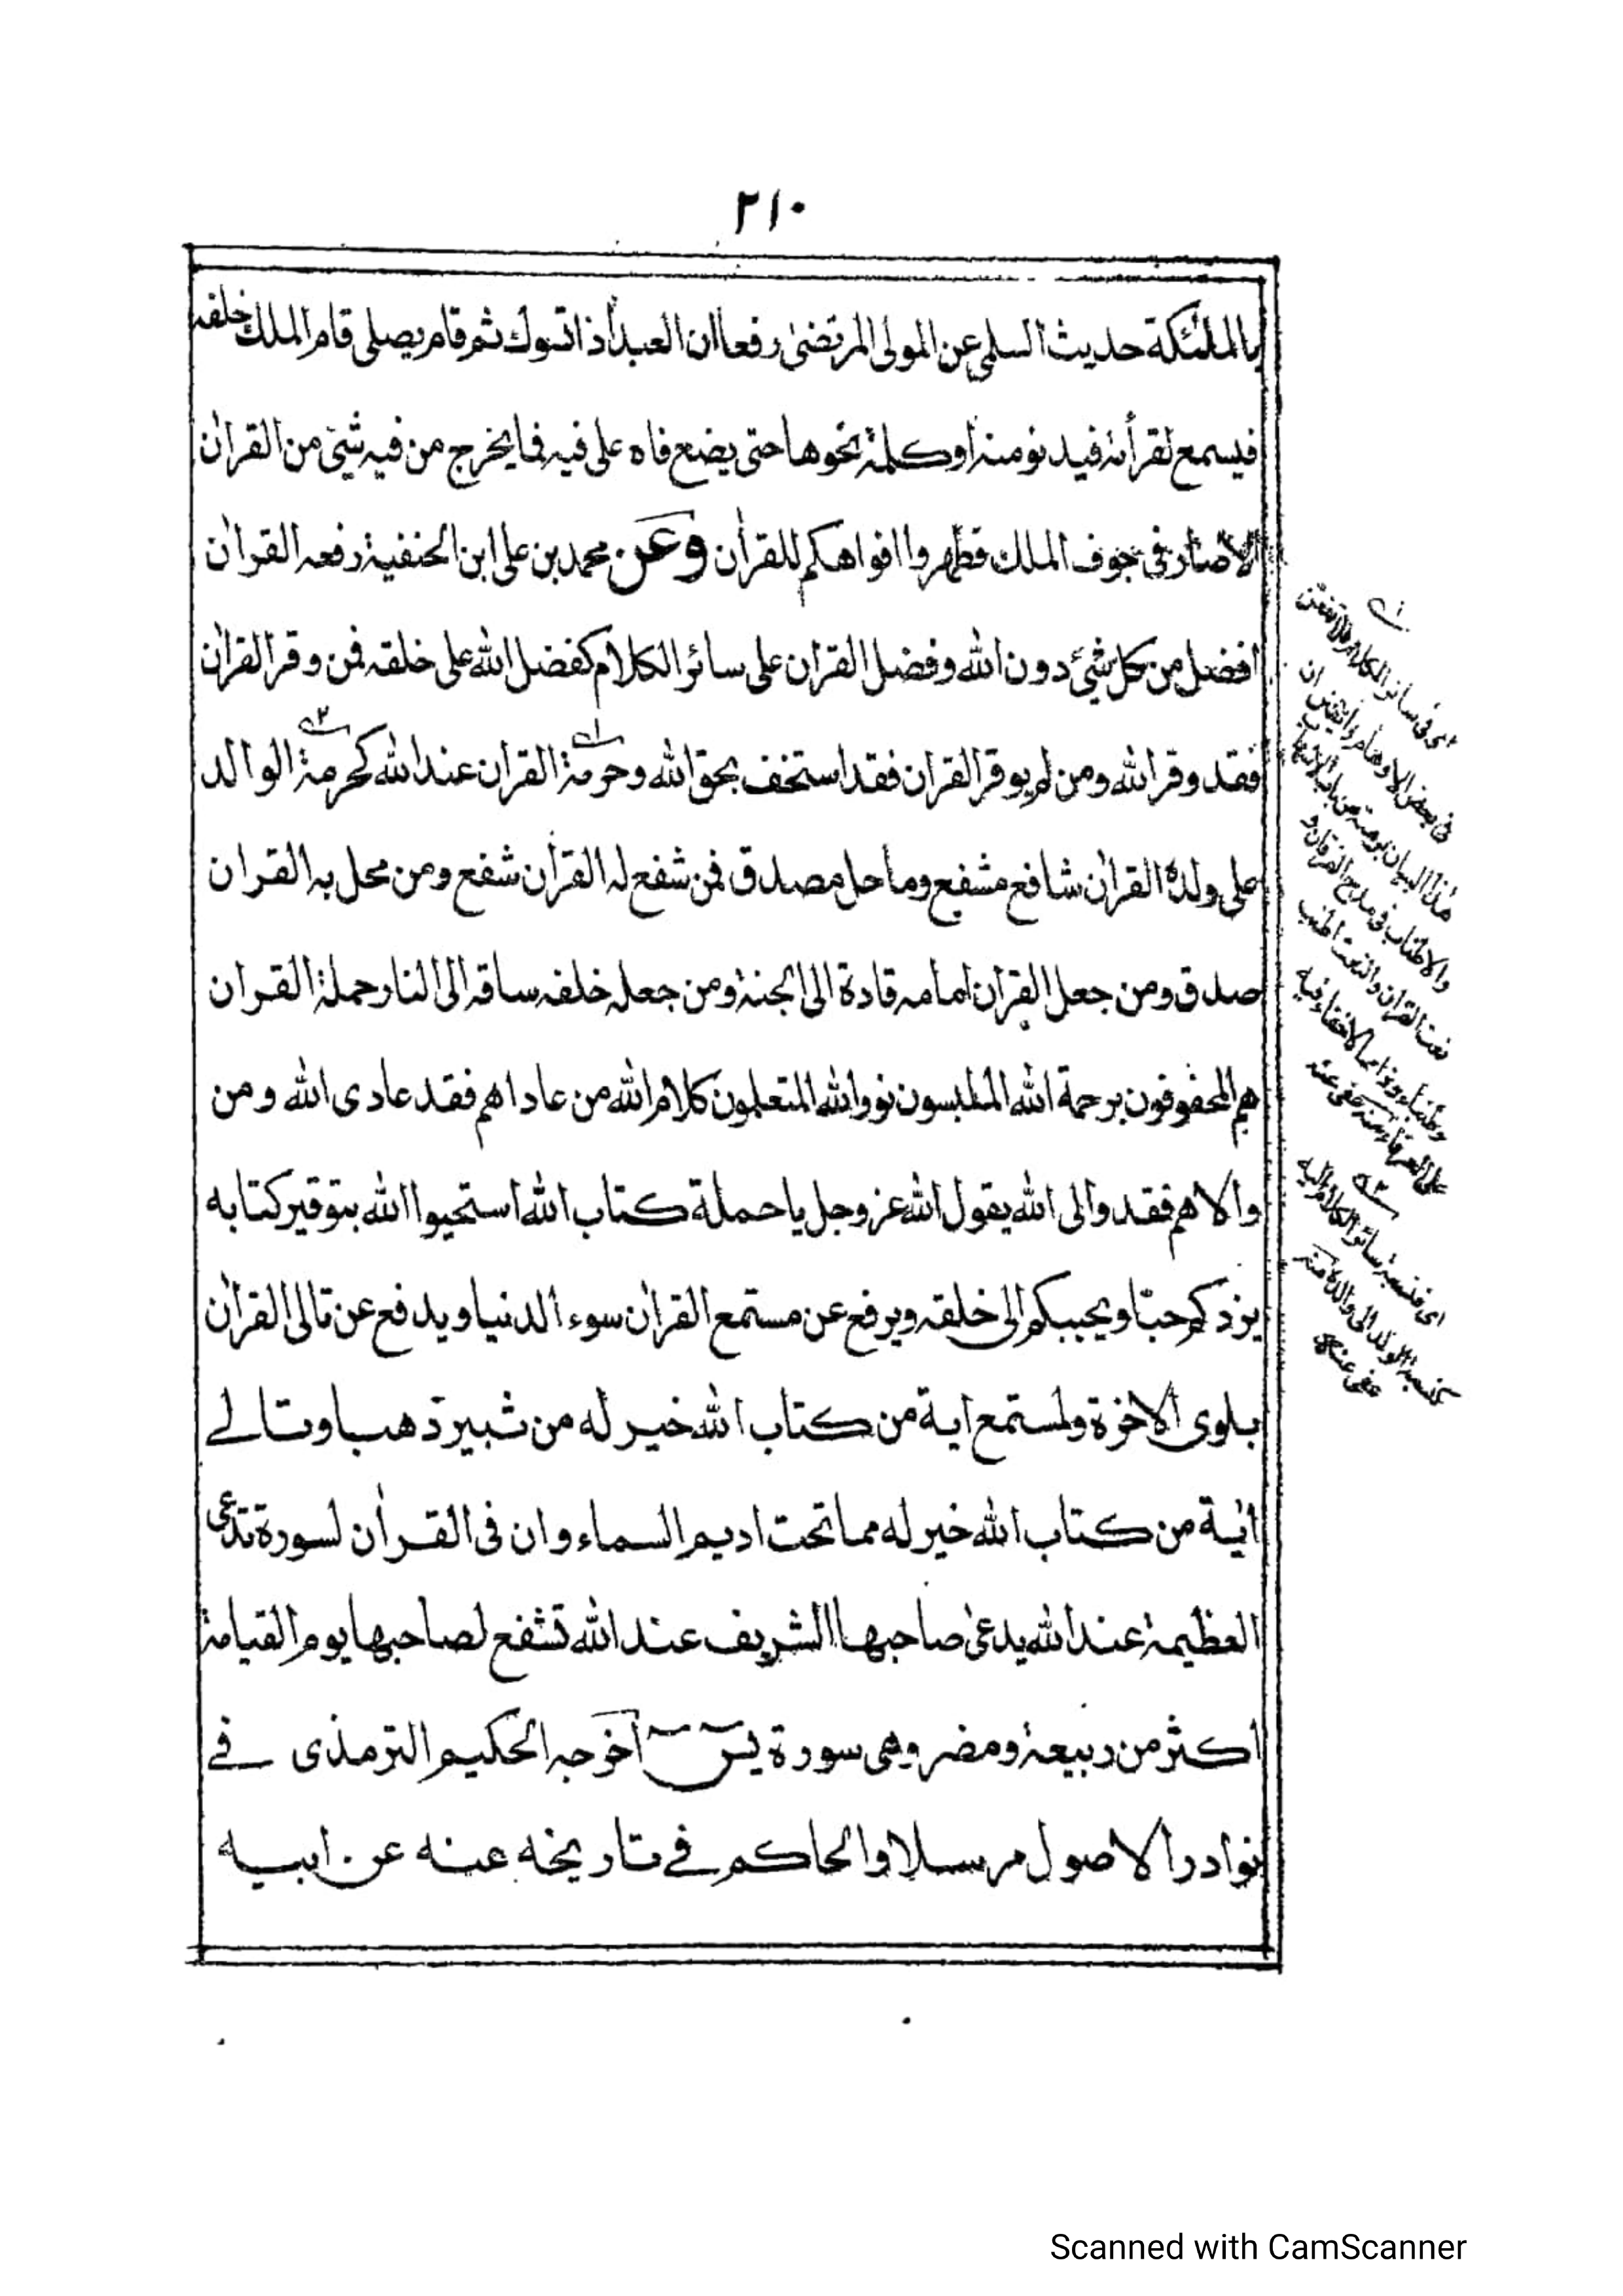 ٢١٠
بالملئكة حديث السلمي عن المولى المرتضىٰ رفعا ان العبد اذا تسوك ثم قام يصلى قام الملك خلفه
فيسمع لقرأته فيدنو منه او كلمة نحوها حتى يضع فاه على فيه فما يخرج من فيه شئ من القران
الا صار فى جوف الملك فطهروا افواهكم للقران وعن محمد بن على ابن الحنفية رفعه القران
افضل من كل شئ دون الله وفضل القران على سائر الكلام كفضل الله على خلقه فمن وقر القران
فقد وقر الله ومن لم يوقر القران فقد استخف بحق الله وحرمة القران عند الله كحرمة الوالد
على ولده القران شافع مشفع وماحل مصدق فمن شفع له القران شفع ومن محل به القران
صدق ومن جعل القران امامه قادة الى الجنة ومن جعله خلفه ساقه الى النار حملة القران
هم المحفوفون برحمة الله الملبسون نور الله المتعلمون كلام الله من عاداهم فقد عادى الله ومن
والاهم فقد والى الله يقول الله عز وجل يا حملة كتاب الله استحيوا الله بتوقير كتابه
يزدكم حبا ويحببكم الى خلقه ويرفع عن مستمع القران سوء الدنيا ويدفع عن تالى القران
بلوى الاخرة ولمستمع اية من كتاب الله خير له من ثبير ذهبا وتالے
اٰية من كتاب الله خير له مما تحت اديم السماء وان فى القران لسورة تدعى
العظيمة عند الله يدعى صاحبها الشريف عند الله تشفع لصاحبها يوم القيامة
اكثر من ربيعة ومضر وهى سورة يٰسٓ اخرجه الحكيم الترمذى فے
نوادر الاصول مرسلا والحاكم فے تاريخه عنه عن ابيه
١
اى فى سائر الكلام
فى بعض الاوهام
هذا البيان
والاطناب فى مدح القران و
نعت القران والنعت اطنب
٢
اى فنسبة سائر الكلام اليه
كنسبة الولد الى والده منه
عفى عنه
Scanned with CamScanner